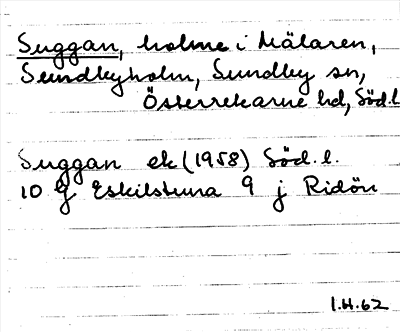 Suggan, holme i Mälaren,
Sundbyholm, Sundby sn,
Österrekarne hd, Söd.l
Suggan ek (1958) Söd. l.
10 g Eskilstuna 9 j Ridön
I.H.62